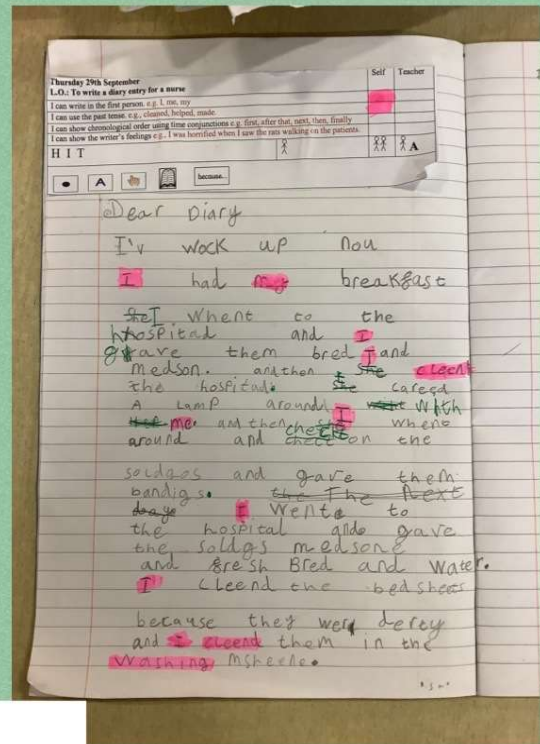 Self Teacher
Thursday 29th September
L.O.: To write a diary entry for a nurse
I can write in the first person, e.g. I, me, my
I can use the past tense. e.g., cleaned, helped, made
I can show chronological order using time conjunctions e.g. first, after that, next, then, finally
I can show the writer's feelings e.g.. I was horrified when I saw the rats walking on the patients.
H I T
A
A
because...
Dear Diary
I'v wock up nou
I had my breakfast
She I whent to the
hospital and I
gave them bred I and
medson. and then She cleen
the hospital. She careed
A Lamp around I with
me. and then whent
around and check on the
soldgos and gave them
bandigs. the The Next
I wente to
the hospital ande gave
the soldgs medsone
and fresh Bred and water.
I cleend the bed sheets
because they were derty
and I cleend them in the
washing msheene.